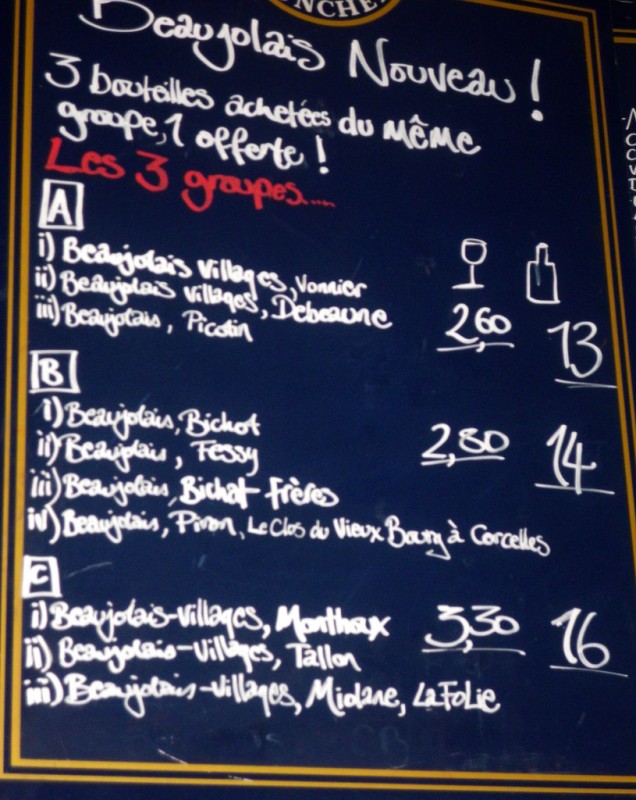 Beaujolais Nouveau !
3 bouteilles achetées du même
groupe, 1 offerte !
Les 3 groupes....
A
i) Beaujolais Villages, Vonnier
ii) Beaujolais Villages, Debeaune
iii) Beaujolais, Picotin
2,60 13
B
i) Beaujolais, Bichot
ii) Beaujolais, Fessy
2,80 14
iii) Beaujolais, Bichat Frères
iv) Beaujolais, Piron, Le Clos du Vieux Bourg à Corcelles
C
i) Beaujolais-Villages, Monthaux 3,30 16
ii) Beaujolais-Villages, Tallon
iii) Beaujolais-Villages, Miolane, La Folie